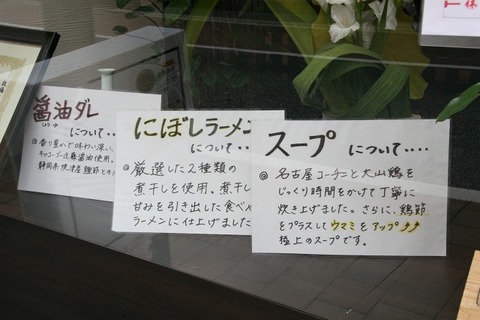 醤油ダレ
しょうゆ
について‥‥
◎香り豊かで味わい深い、
キッコーゴ近藤醤油使用。
静岡県焼津産鰹節との
にぼしラーメン
について‥‥
◎厳選した2種類の
煮干しを使用。煮干し
甘みを引き出した食べや
ラーメンに仕上げました
スープについて‥‥
◎名古屋コーチンと大山鶏を
じっくり時間をかけて丁寧に
炊き上げました。さらに、鶏節
をプラスしてウマミをアップ
極上のスープです。
休